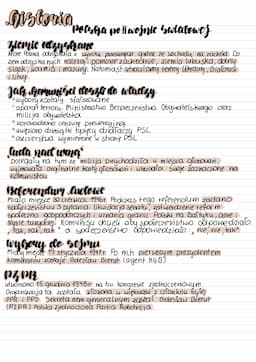 Historia
Polska po II wojnie światowej
Ziemie odzyskane
które Polska odzyskała w wyniku przesunięcia granic ze wschodu na zachód. Do
ziem odzyskanych należą: pomorze zachodnie, ziemia lubuska, dolny
śląsk, warmia i mazury. Natomiast straciliśmy tereny Ukrainy, Białorusi
i Litwy.
Jak komuniści doszli do władzy
wybory zostały sfałszowane
aparat terroru, Ministerstwo Bezpieczeństwa Obywatelskiego oraz
milicja obywatelska
wprowadzono cenzurę prewencyjną
wyparto dawnych działaczy PSL
aresztowania wymierzone w stronę PSL
Cuda nad urną
polegały na tym że milicja przychodziła w miejsca głosowań,
wyrzucała oryginalne karty głosowań i wrzucała swoje zaznaczone na
komunistów.
Referendum Ludowe
Miało miejsce 30 czerwca 1946. Podczas tego referendum zadano
społeczeństwu 3 pytania: likwidacja senatu, zatwierdzenie reform
społeczno gospodarczych i uznania granic Polski na Bałtyku, odrze i
Nysie Łużyckiej. Komuniści chcieli aby społeczeństwo odpowiedziało
„tak, tak, tak" a społeczeństwo odpowiedziało: „nie, nie, tak"
Wybory do sejmu
Miały miejsce 19 stycznia 1947r. Po nich pierwszym prezydentem
komunistów zostaje Bolesław Bierut (agent KGB)
PZPR
utworzono 15 grudnia 1948r na tzw kongresie zjednoczeniowym.
Organizacja ta została złożona w większości z członków byłej
PPR i PPS. Sekretarzem generalnym został Bolesław Bierut
(PZPR) Polska Zjednoczona Partia Robotnicza